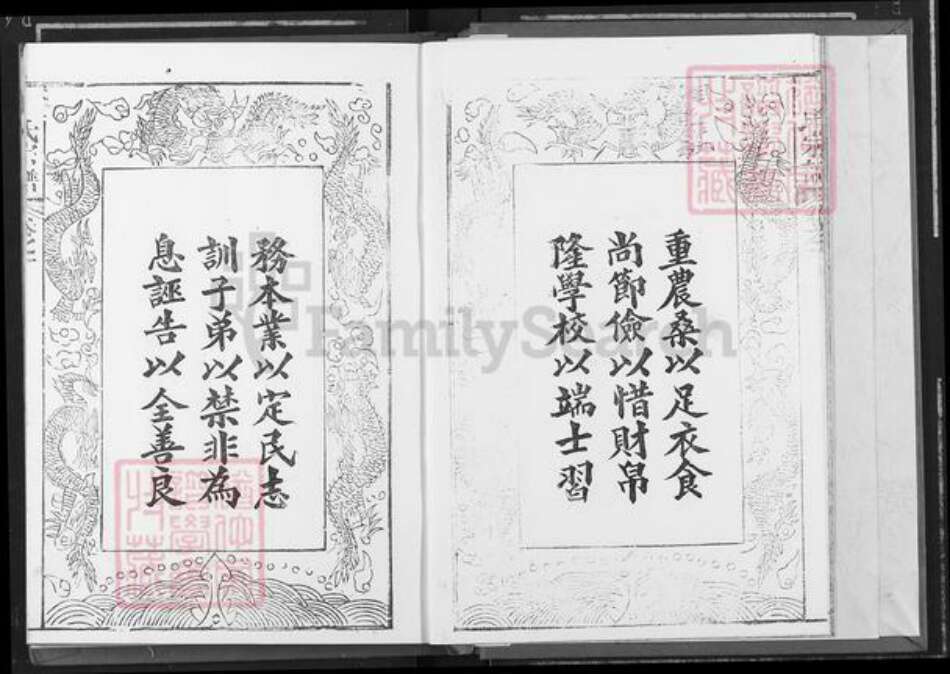 重農桑以足衣食
尚節儉以惜財帛
隆學校以端士習
務本業以定民志
訓子弟以禁非為
息誣告以全善良
FamilySearch